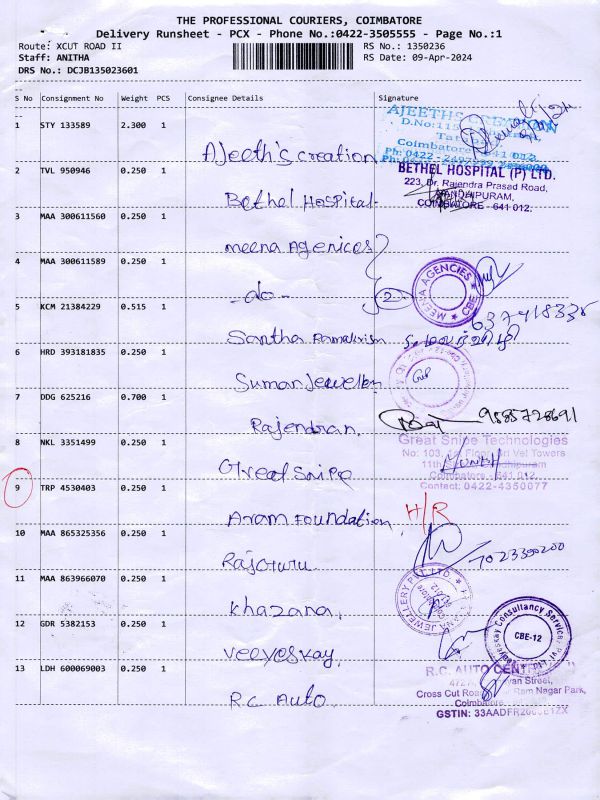 THE PROFESSIONAL COURIERS, COIMBATORE
Delivery Runsheet - PCX - Phone No.:0422-3505555 - Page No.:1
Route: XCUT ROAD II
RS No.: 1350236
Staff: ANITHA
RS Date: 09-Apr-2024
DRS No.: DCJB135023601
S No Consignment No Weight PCS Consignee Details Signature
1 STY 133589 2.300 1 Ajeeth's creation
AJEETHS CREATION
D.No:115
Coimbatore 641 012.
Ph: 0422 - 2497
2 TVL 950946 0.250 1 Bethel Hospital
BETHEL HOSPITAL (P) LTD.
223, Dr. Rajendra Prasad Road,
COIMBATORE - 641 012.
3 MAA 300611560 0.250 1 meena Agenices
4 MAA 300611589 0.250 1 -do- 2
MEENA AGENCIES CBE
5 KCM 21384229 0.515 1 Santha
6 HRD 393181835 0.250 1 Suman Jewellery
7 DDG 625216 0.700 1 Rajendran. 9885728691
8 NKL 3351499 0.250 1 Great Snipe
Great Snipe Technologies
No: 103, Floor, Sri Vel Towers
11th
Coimbatore - 641 012.
Contact: 0422-4350077
9 TRP 4530403 0.250 1 Aram Foundation H/R
10 MAA 865325356 0.250 1 7023300200
11 MAA 863966070 0.250 1 Khazana.
JEWELLERY PVT LTD
12 GDR 5382153 0.250 1 veeyeskay.
Consultancy Services
CBE-12
13 LDH 600069003 0.250 1 R.C Auto
R.C. AUTO CENTRE
Street,
Cross Cut Road, Ram Nagar Park,
Coimbatore
GSTIN: 33AADFR